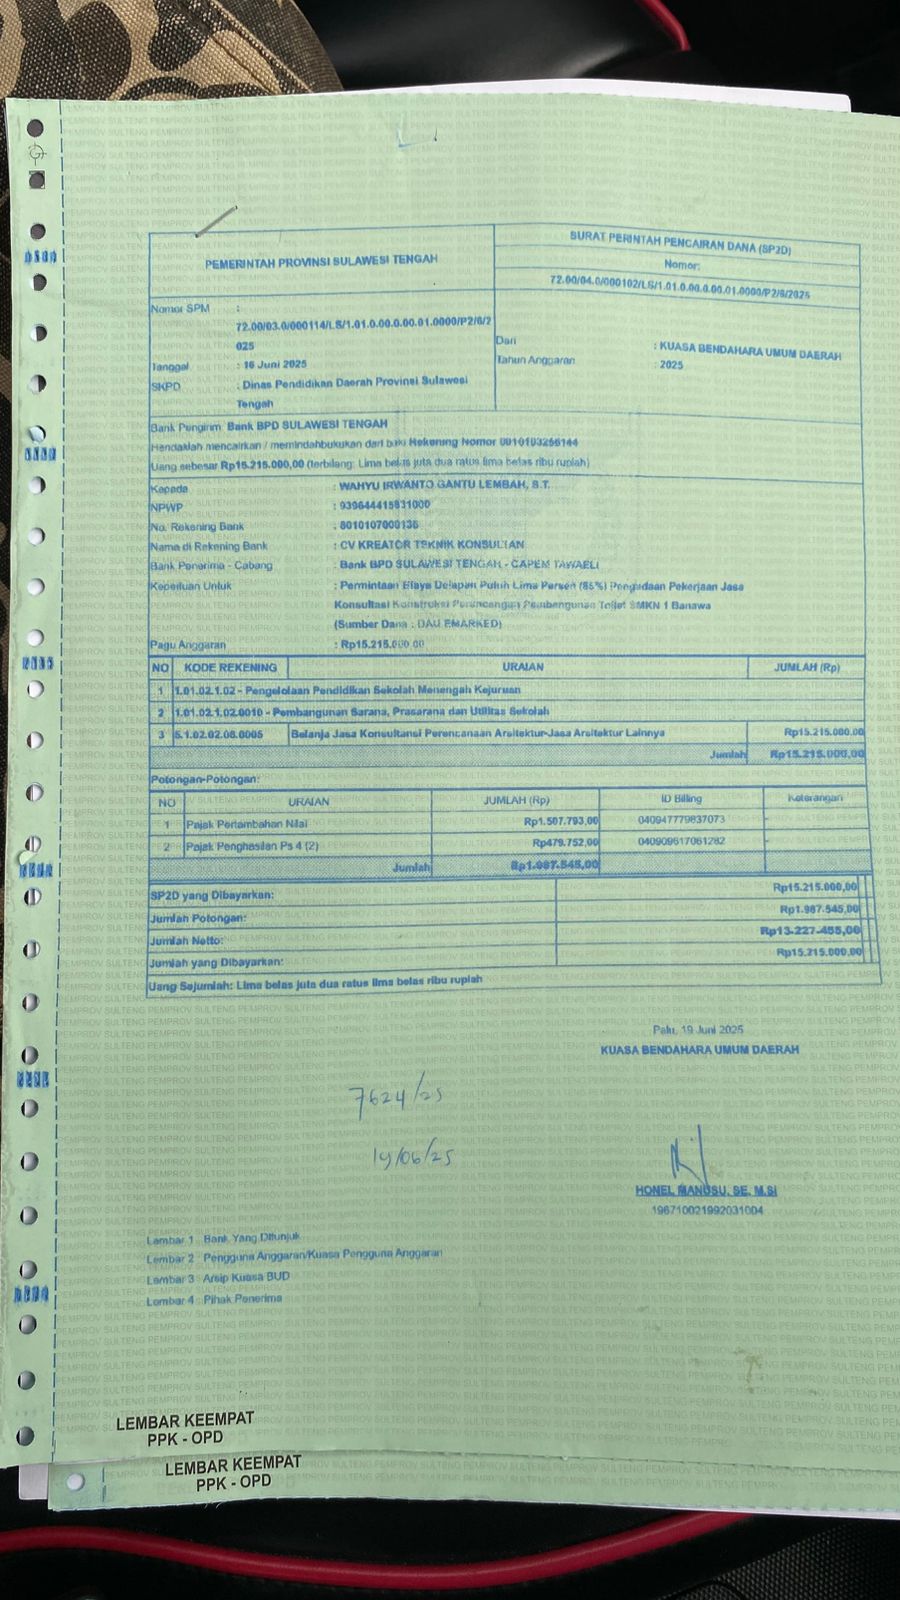 PEMERINTAH PROVINSI SULAWESI TENGAH
SURAT PERINTAH PENCAIRAN DANA (SP2D)
Nomor:
72.00/04.0/000102/LS/1.01.0.00.0.00.01.0000/P2/6/2025
Nomor SPM :
72.00/03.0/000114/LS/1.01.0.00.0.00.01.0000/P2/6/2
025
Tanggal : 16 Juni 2025
SKPD : Dinas Pendidikan Daerah Provinsi Sulawesi
Tengah
Dari : KUASA BENDAHARA UMUM DAERAH
Tahun Anggaran : 2025
Bank Pengirim Bank BPD SULAWESI TENGAH
Hendaklah mencairkan / memindahbukukan dari baki Rekening Nomor 0010103256144
Uang sebesar Rp15.215.000,00 (terbilang: Lima belas juta dua ratus lima belas ribu rupiah)
Kepada : WAHYU IRWANTO GANTU LEMBAH, S.T.
NPWP : 939644415831000
No. Rekening Bank : 8010107000136
Nama di Rekening Bank : CV KREATOR TEKNIK KONSULTAN
Bank Penerima - Cabang : Bank BPD SULAWESI TENGAH - CAPEM TAWAELI
Keperluan Untuk : Permintaan Biaya Delapan Puluh Lima Persen (85%) Pengadaan Pekerjaan Jasa
Konsultasi Konstruksi Perancangan Pembangunan Toilet SMKN 1 Banawa
(Sumber Dana : DAU EMARKED)
Pagu Anggaran : Rp15.215.000.00
NO KODE REKENING URAIAN JUMLAH (Rp)
1 1.01.02.1.02 - Pengelolaan Pendidikan Sekolah Menengah Kejuruan
2 1.01.02.1.02.0010 - Pembangunan Sarana, Prasarana dan Utilitas Sekolah
3 5.1.02.02.08.0005 Belanja Jasa Konsultansi Perencanaan Arsitektur-Jasa Arsitektur Lainnya Rp15.215.000,00
Jumlah Rp15.215.000,00
Potongan-Potongan:
NO URAIAN JUMLAH (Rp) ID Billing Keterangan
1 Pajak Pertambahan Nilai Rp1.507.793,00 040947779837073 -
2 Pajak Penghasilan Ps 4 (2) Rp479.752,00 040909617061282 -
Jumlah Rp1.987.545,00
SP2D yang Dibayarkan: Rp15.215.000,00
Jumlah Potongan: Rp1.987.545,00
Jumlah Netto: Rp13.227.455,00
Jumlah yang Dibayarkan: Rp15.215.000,00
Uang Sejumlah: Lima belas juta dua ratus lima belas ribu rupiah
Palu, 19 Juni 2025
KUASA BENDAHARA UMUM DAERAH
7624/25
19/06/25
HONEL MANUSU, SE, M.Si
196710021992031004
Lembar 1 Bank Yang Ditunjuk
Lembar 2 Pengguna Anggaran/Kuasa Pengguna Anggaran
Lembar 3 Arsip Kuasa BUD
Lembar 4 Pihak Penerima
LEMBAR KEEMPAT
PPK - OPD
LEMBAR KEEMPAT
PPK - OPD